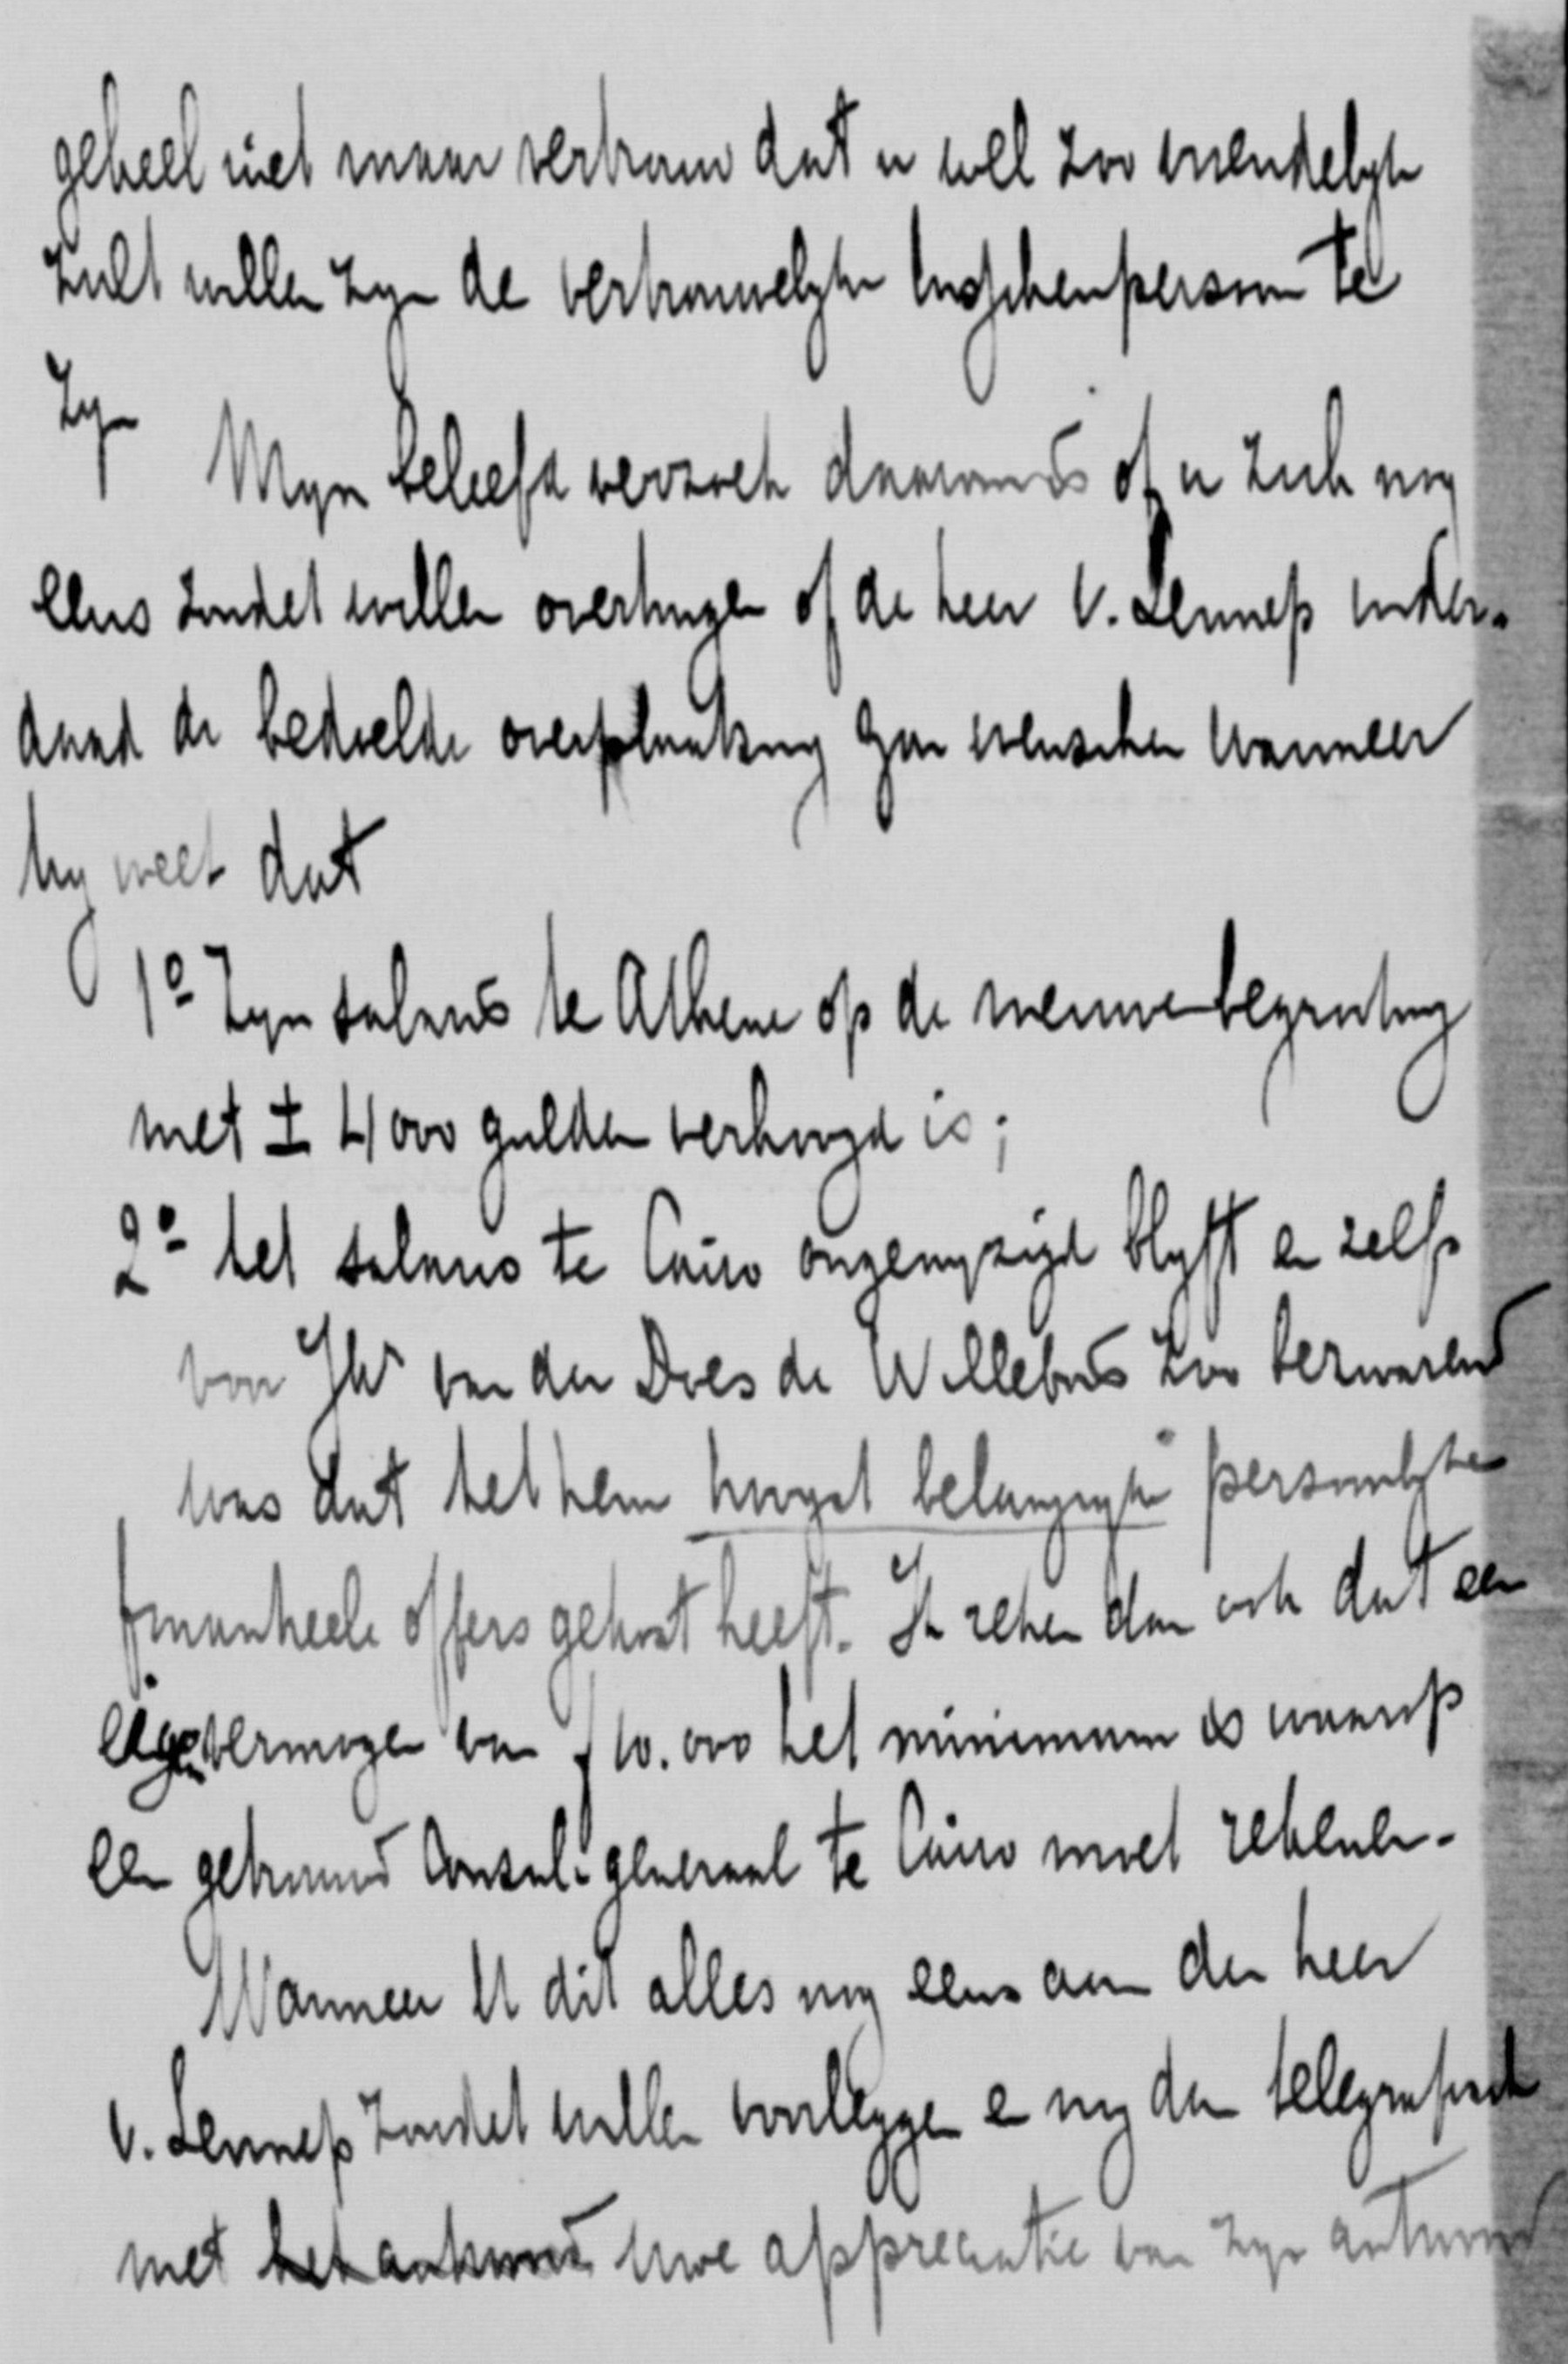 geheel niet maar vertrouw dat u wel zoo vriendelyk
zult willen zyn de vertrouwelyke tusschenpersoon te
zyn
Myn beleefd verzoek daarom is of u zich nog
eens zoudet willen overtuigen of de heer v. Lennep inder-
daad de bedoelde overplaatsing zou wenschen wanneer
hy weet dat
1º Zyn salaris te Athene op de nieuwe begrooting
met ± 4000 gulden verhoogd is;
2º het salaris te Cairo ongewyzigd blyft en zelfs
voor Jhr van der Does de Willebois zoo bezwarend
was dat het hem hoogst belangryke persoonlyke
financieele offers gekost heeft. Ik reken dan ook dat een
eigen vermogen van f 10.000 het minimum is waarop
een getrouwd Consul-generaal te Cairo moet rekenen.
Wanneer U dit alles nog eens aan den heer
v. Lennep zoudet willen voorleggen en my dan telegrafisch
met het antwoord uwe appreciatie van zyn antwoord